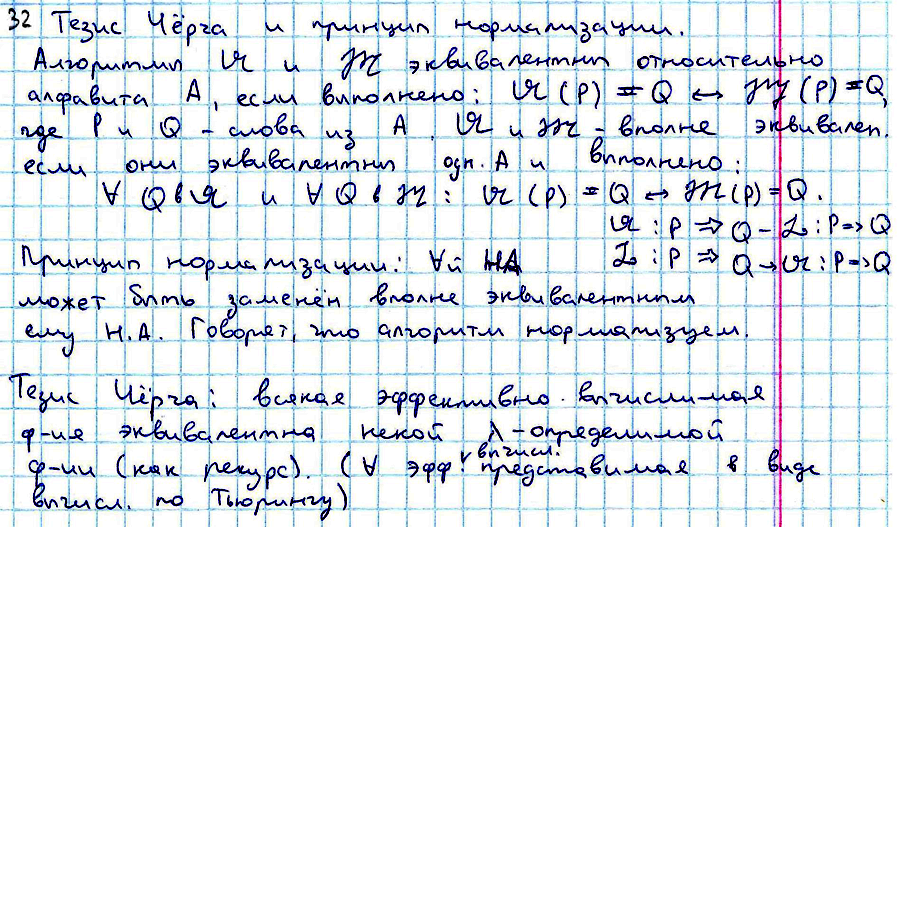 32 Тезис Чёрча и принцип нормализации.
Алгоритмы 𝔄 и 𝔐 эквивалентны относительно
алфавита A, если выполнено: 𝔄(P) = Q ↔ 𝔐(P) = Q,
где P и Q - слова из A. 𝔄 и 𝔐 - вполне эквивален.
если они эквивалентны одн. A и выполнено:
∀ Q в 𝔄 и ∀ Q в 𝔐 : 𝔄(P) = Q ↔ 𝔐(P) = Q.
𝔄 : P ⇒ Q - L : P => Q
L : P ⇒ Q → 𝔄 : P => Q
Принцип нормализации: ∀й НА
может быть заменён вполне эквивалентным
ему Н.А. Говорят, что алгоритм нормализуем.
Тезис Чёрча: всякая эффективно вычислимая
ф-ия эквивалентна некой λ-определимой
ф-ии (как рекурс). (∀ эфф. вычисл. представимая в виде
вычисл. по Тьюрингу)